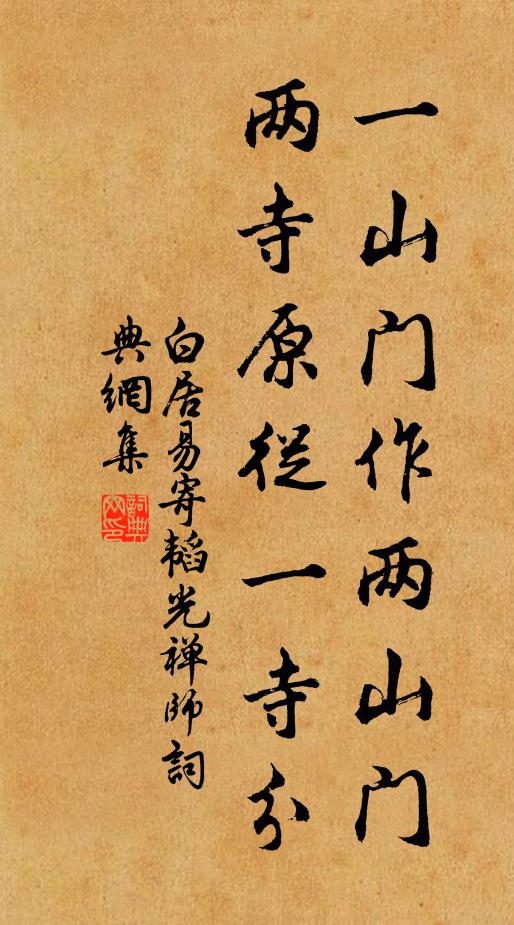 一山门作两山门
两寺原從一寺分
白居易寄韬光禅師詞
典網集
詞典
网印